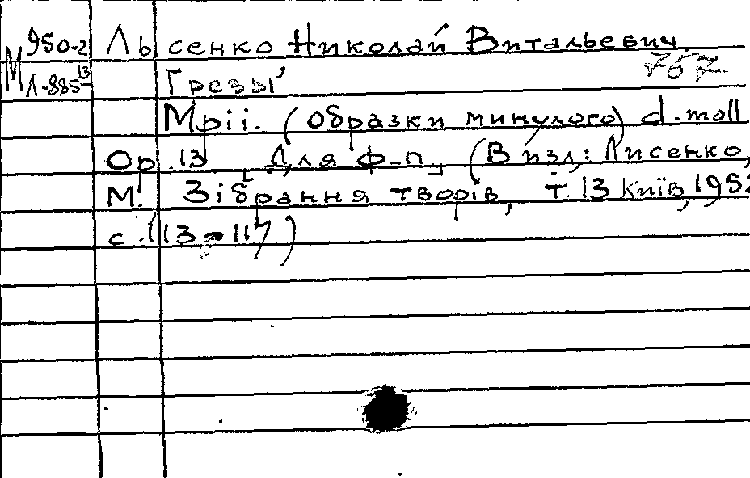 М 950-2 Льсенко Николай Витальевич.
Л-885 13 Грезы
Мрії. (образки минулого) d-moll
Op. 13 Для ф-п, (В изд: Лисенко,
М. Зібрання творів, т. 13 Київ, 195
с. (113-117)